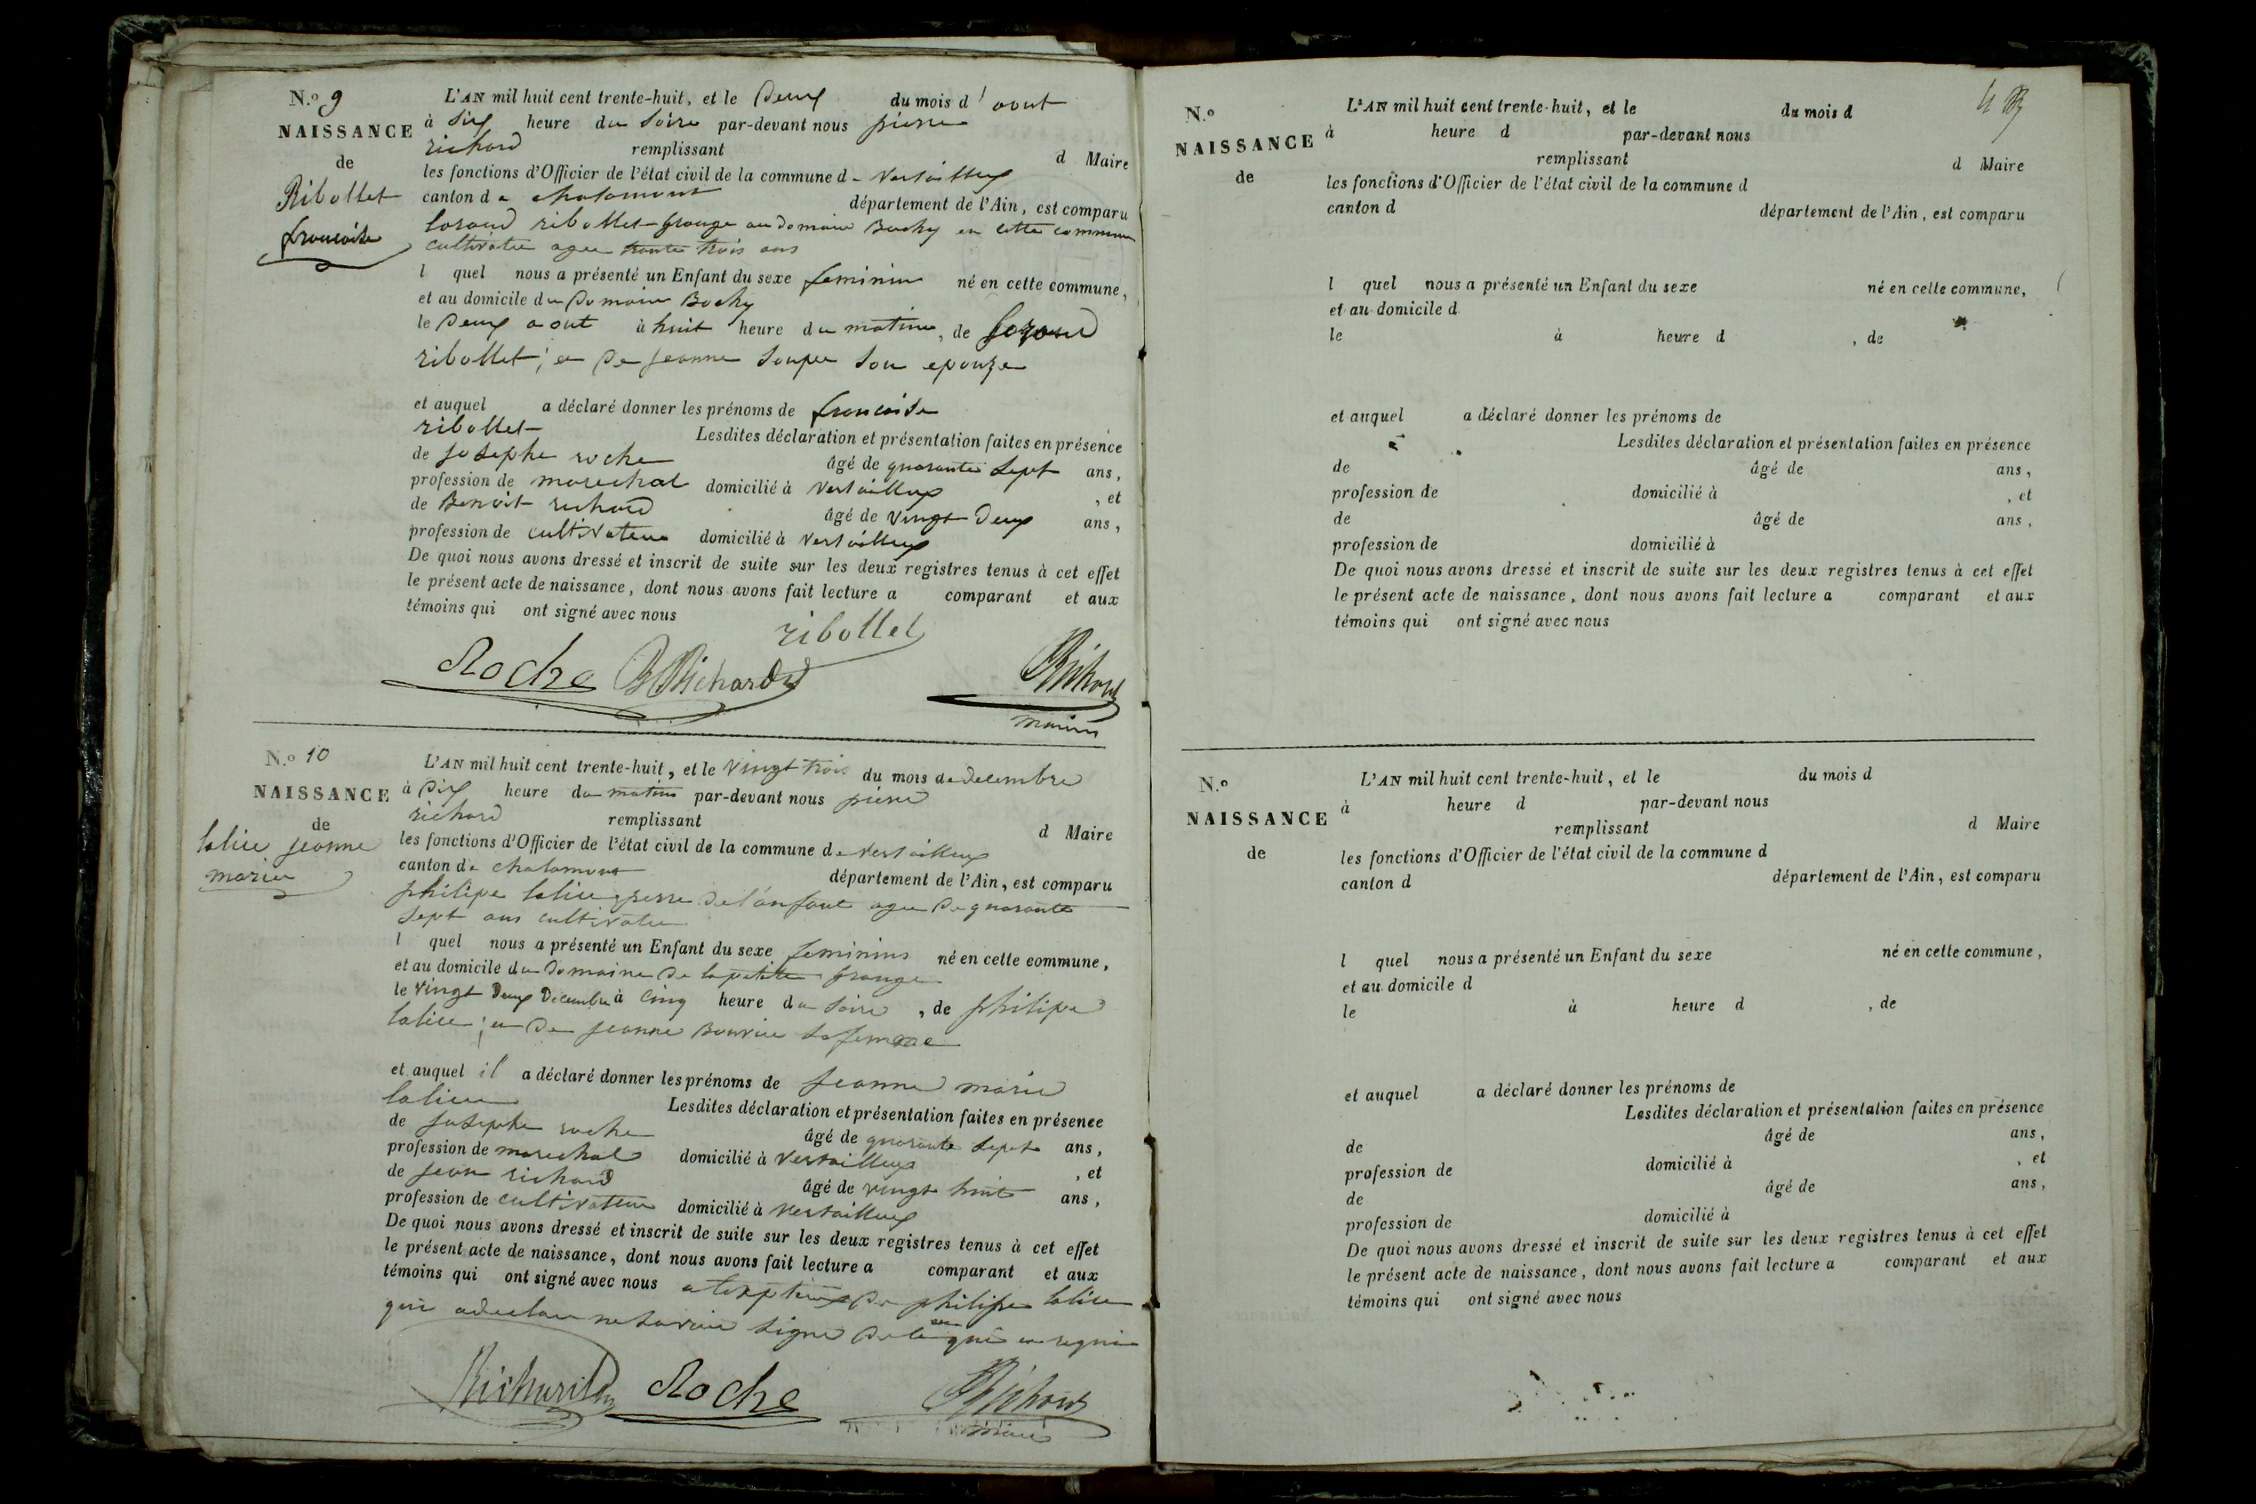 N.o 9
NAISSANCE
de
Ribollet
francoise
L'AN mil huit cent trente-huit, et le deux du mois d'aout
à six heure du soire par-devant nous pierre
richard remplissant d Maire
les fonctions d'Officier de l'état civil de la commune de Versailleux
canton de chalamont département de l'Ain, est comparu
ribollet granger au domaine Bochy en cette commune
cultivateur agee trante trois ans
l quel nous a présenté un Enfant du sexe feminin né en cette commune,
et au domicile du domaine Bochy
le deux aout à huit heure du matin, de
ribollet, e de jeanne soupe son epouze
et auquel a déclaré donner les prénoms de francoise
ribollet Lesdites déclaration et présentation faites en présence
de josephe roche âgé de quarante sept ans,
profession de marechal domicilié à versailleux , et
de Benoit richard âgé de vingt deux ans,
profession de cultivateur domicilié à versailleux
De quoi nous avons dressé et inscrit de suite sur les deux registres tenus à cet effet
le présent acte de naissance, dont nous avons fait lecture a comparant et aux
témoins qui ont signé avec nous
ribollet
Roche B Richard Richard
maire
N.o 10
NAISSANCE
de
lalive jeanne
marie
L'AN mil huit cent trente-huit, et le vingt trois du mois de decembre
à dix heure du matin par-devant nous pierre
richard remplissant d Maire
les fonctions d'Officier de l'état civil de la commune de versailleux
canton de chalamont département de l'Ain, est comparu
philipe lalive perre de l'anfant agee de quarante
sept ans cultivateur
l quel nous a présenté un Enfant du sexe feminins né en cette commune,
et au domicile du domaine de la petite grange
le vingt deux decembre à cinq heure du soire , de philipe
lalive, e de jeanne Bouvier sa femme
et auquel il a déclaré donner les prénoms de jeanne marie
lalive Lesdites déclaration et présentation faites en présence
de josephe roche âgé de quarante sept ans,
profession de marechal domicilié à versailleux , et
de jean richard âgé de vingt huit ans,
profession de cultivateur domicilié à versailleux
De quoi nous avons dressé et inscrit de suite sur les deux registres tenus à cet effet
le présent acte de naissance, dont nous avons fait lecture a comparant et aux
témoins qui ont signé avec nous philipe lalive
qui a declare ne savoir signe de ce que requi
Richard Roche Richard
maire
N.o
NAISSANCE
de
L'AN mil huit cent trente-huit, et le du mois d
à heure d par-devant nous
remplissant d Maire
les fonctions d'Officier de l'état civil de la commune d
canton d département de l'Ain, est comparu
l quel nous a présenté un Enfant du sexe né en cette commune,
et au domicile d
le à heure d , de
et auquel a déclaré donner les prénoms de
Lesdites déclaration et présentation faites en présence
de âgé de ans,
profession de domicilié à , et
de âgé de ans,
profession de domicilié à
De quoi nous avons dressé et inscrit de suite sur les deux registres tenus à cet effet
le présent acte de naissance, dont nous avons fait lecture a comparant et aux
témoins qui ont signé avec nous
N.o
NAISSANCE
de
L'AN mil huit cent trente-huit, et le du mois d
à heure d par-devant nous
remplissant d Maire
les fonctions d'Officier de l'état civil de la commune d
canton d département de l'Ain, est comparu
l quel nous a présenté un Enfant du sexe né en cette commune,
et au domicile d
le à heure d , de
et auquel a déclaré donner les prénoms de
Lesdites déclaration et présentation faites en présence
de âgé de ans,
profession de domicilié à , et
de âgé de ans,
profession de domicilié à
De quoi nous avons dressé et inscrit de suite sur les deux registres tenus à cet effet
le présent acte de naissance, dont nous avons fait lecture a comparant et aux
témoins qui ont signé avec nous